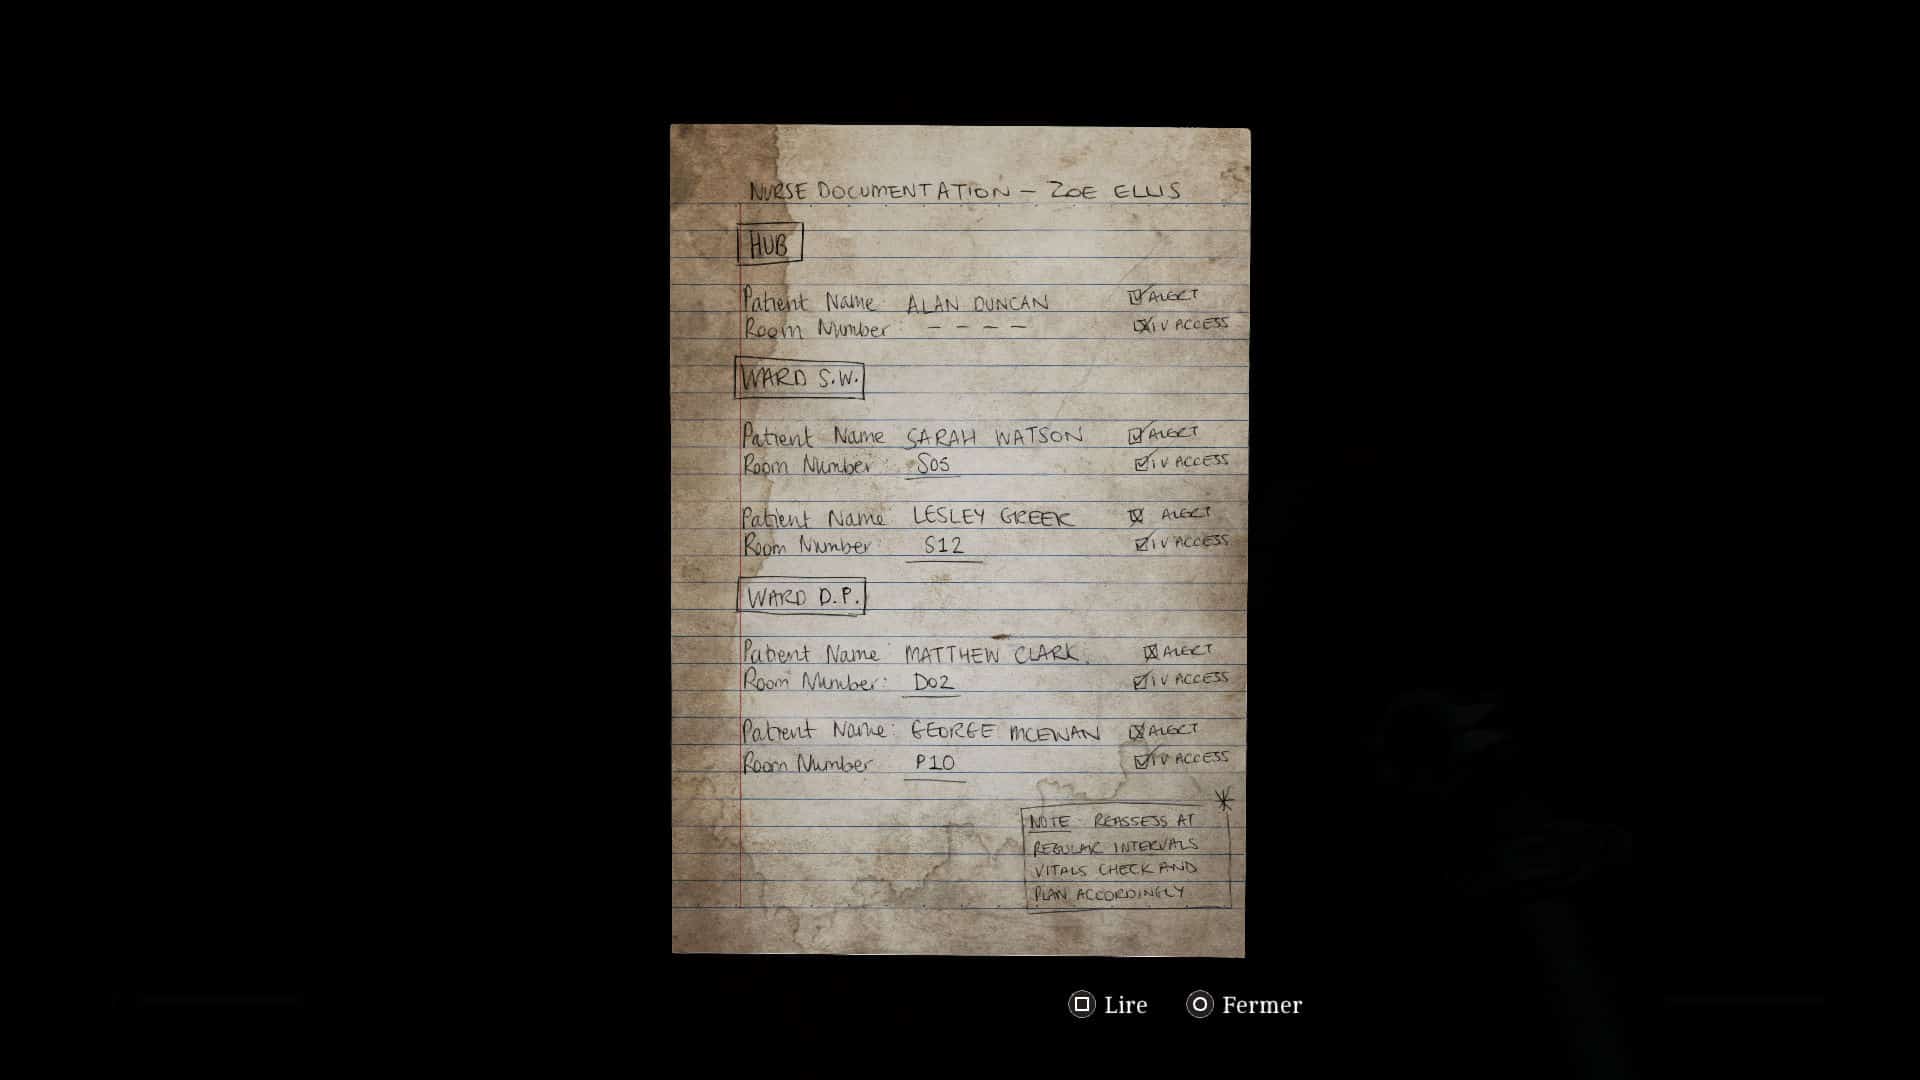 NURSE DOCUMENTATION — ZOE ELLIS
HUB
Patient Name: ALAN DUNCAN ALERT
Room Number: – – – – IV ACCESS
WARD S.W.
Patient Name SARAH WATSON ALERT
Room Number: S05 IV ACCESS
Patient Name: LESLEY GREER ALERT
Room Number: S12 IV ACCESS
WARD D.P.
Patient Name: MATTHEW CLARK. ALERT
Room Number: D02 IV ACCESS
Patient Name: GEORGE MCEWAN ALERT
Room Number P10 IV ACCESS
NOTE: REASSESS AT
REGULAR INTERVALS
VITALS CHECK AND
PLAN ACCORDINGLY
Lire Fermer